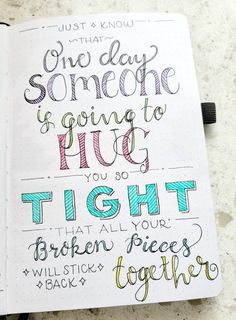 JUST KNOW
~THAT~
One day
SOMEONE
is going to
HUG
YOU SO
TIGHT
THAT ALL YOUR
Broken Pieces
WILL STICK
BACK together